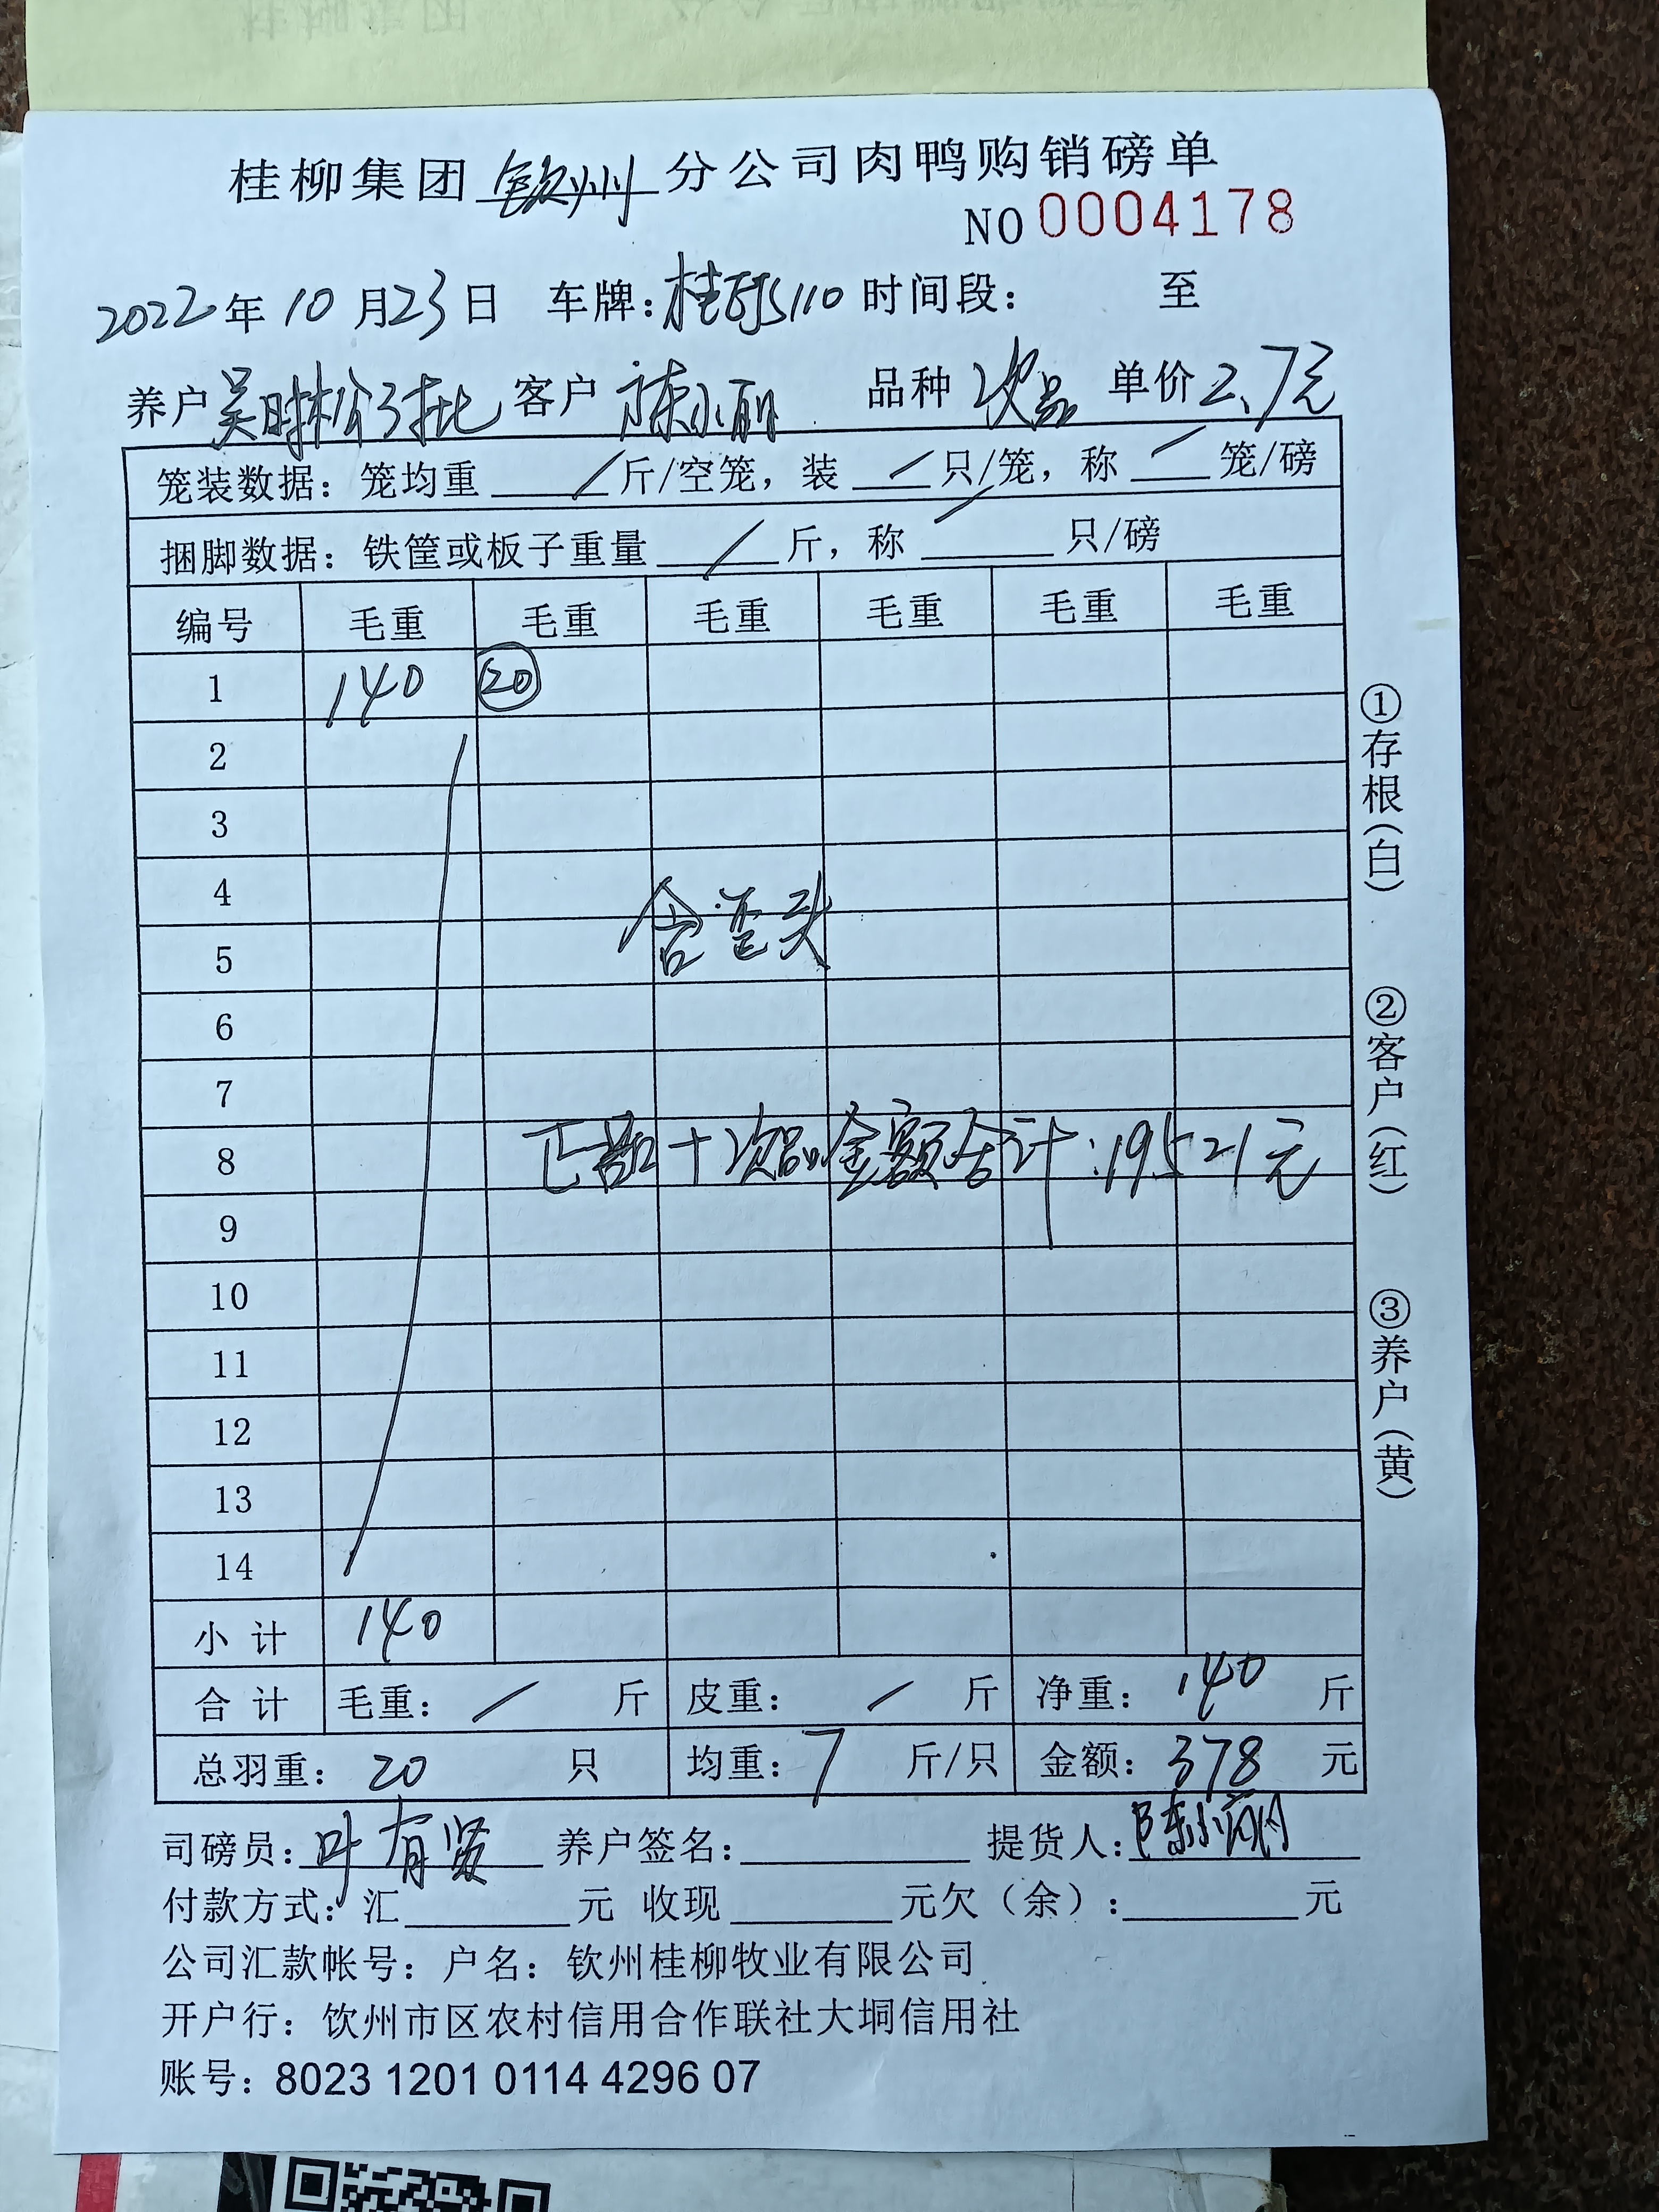 桂柳集团 钦州 分公司肉鸭购销磅单
NO 0004178
2022年10月23日 车牌: 时间段: 至
养户 吴时松3批 客户 陈小丽 品种 次品 单价 2.7元
笼装数据:笼均重 / 斤/空笼,装 / 只/笼,称 / 笼/磅
捆脚数据:铁筐或板子重量 / 斤,称 / 只/磅
编号 毛重 毛重 毛重 毛重 毛重 毛重
1 140 ⑳
2
3
4
含歪头
5
6
7
8 正品+次品金额合计:19521元
9
10
11
12
13
14
小计 140
合计 毛重: / 斤 皮重: / 斤 净重: 140 斤
总羽重: 20 只 均重: 7 斤/只 金额: 378 元
司磅员: 叶有贤 养户签名: 提货人: 陈小丽
付款方式:汇 元 收现 元欠(余): 元
公司汇款帐号:户名:钦州桂柳牧业有限公司
开户行:饮州市区农村信用合作联社大垌信用社
账号:8023 1201 0114 4296 07
①存根(白) ②客户(红) ③养户(黄)